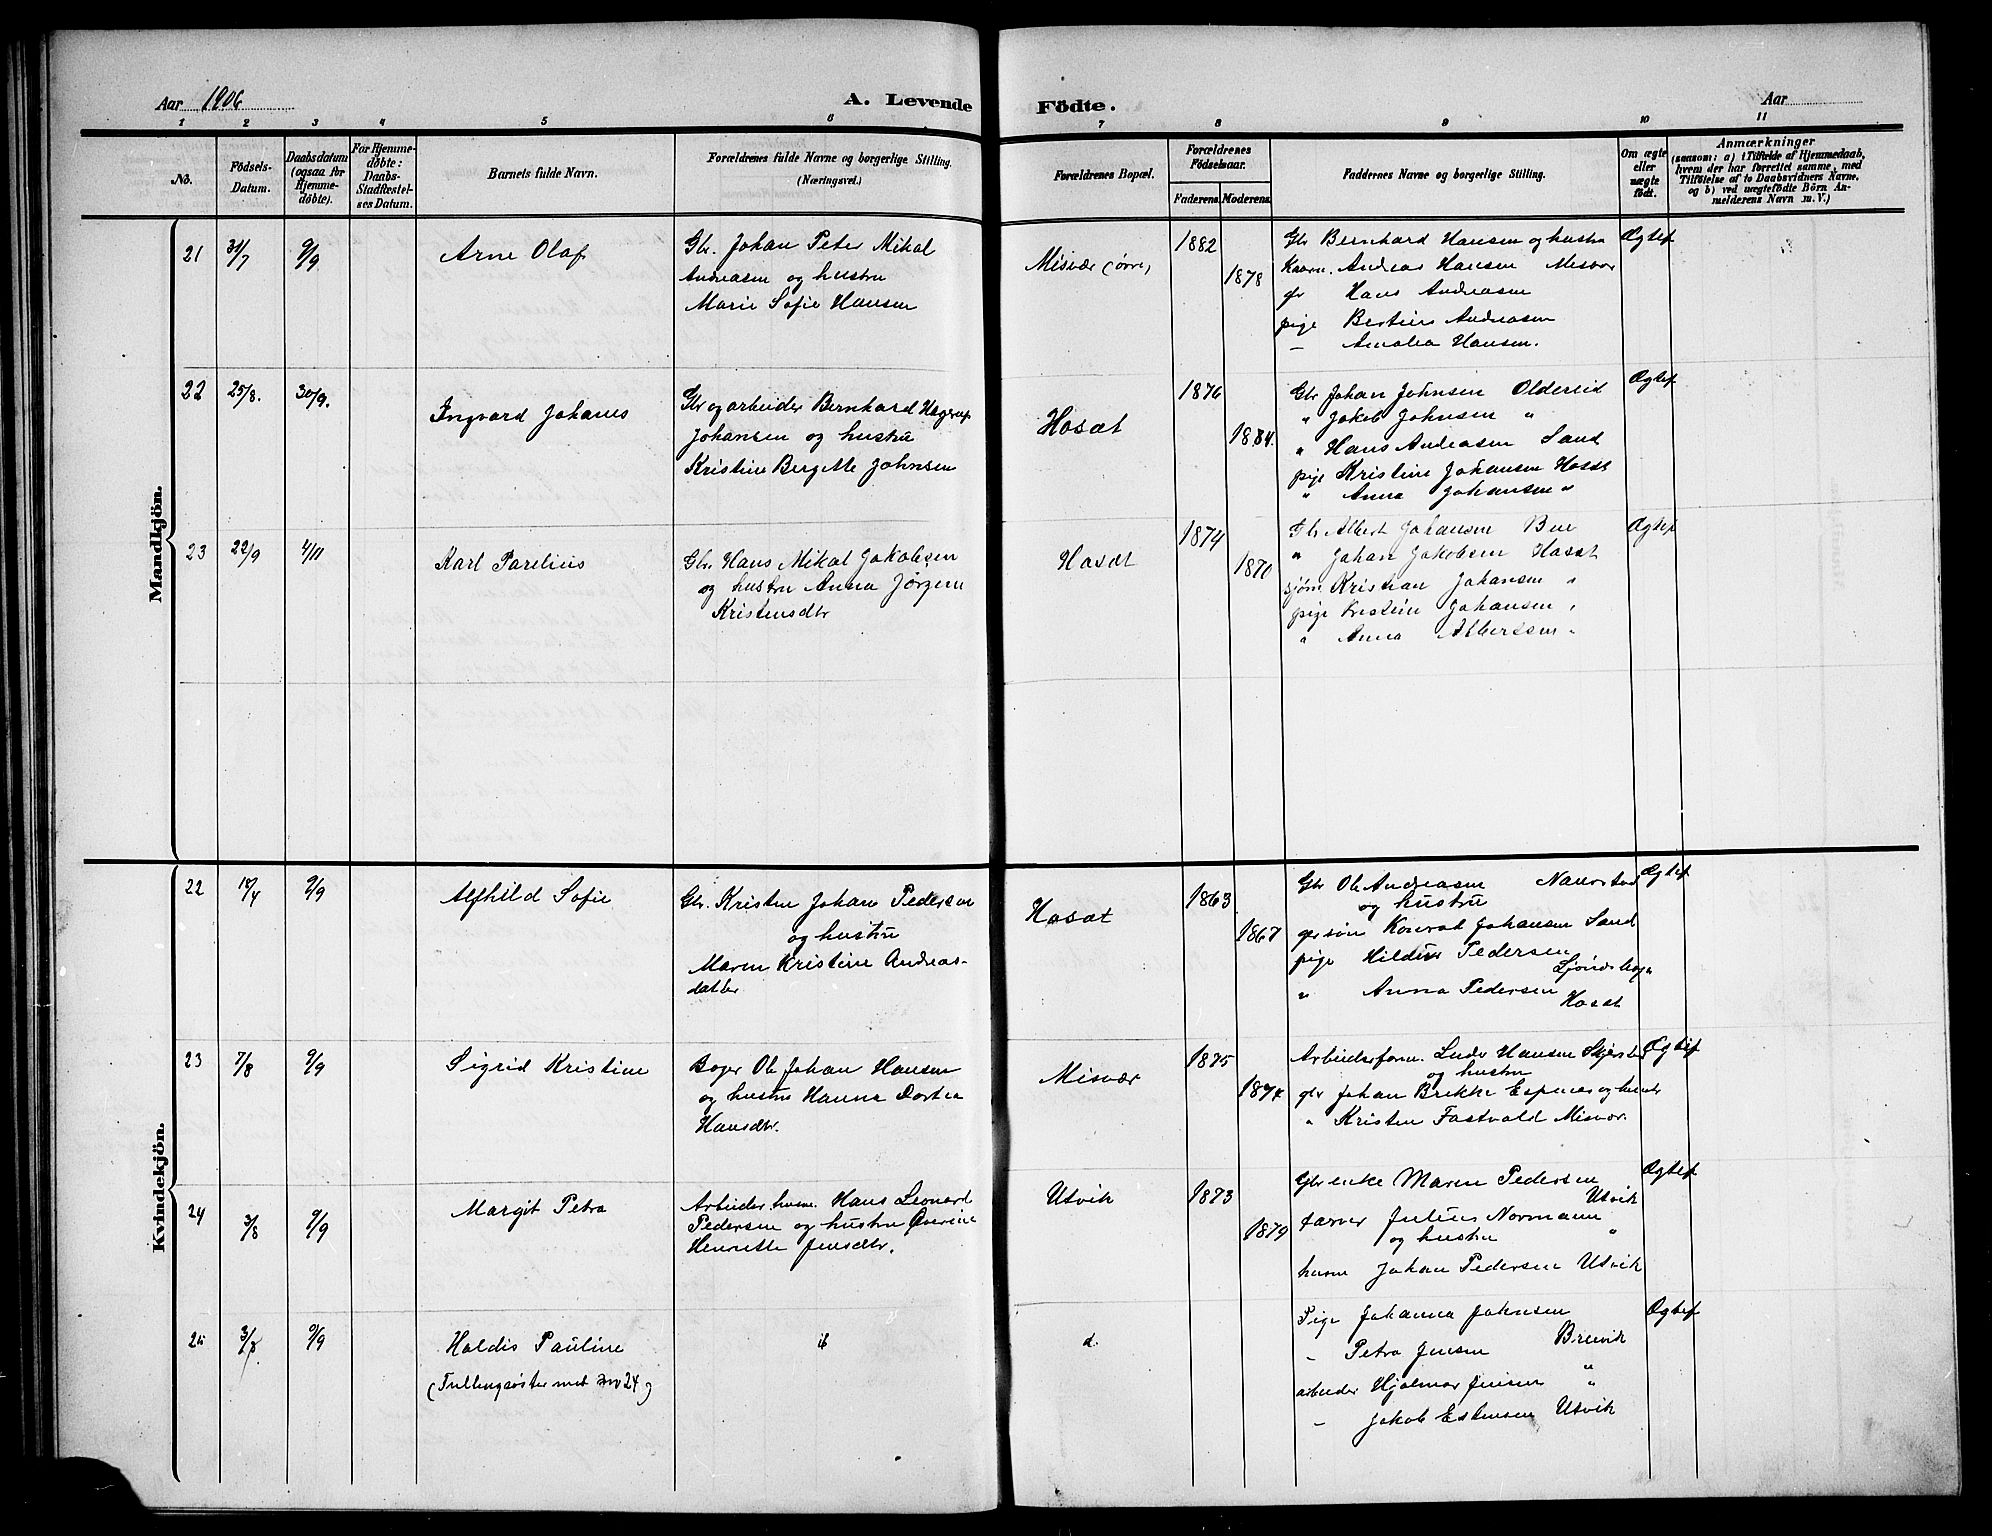 Aar 1906
A. Levende Födte.
Aar
1 2 3 4 5 6 7 8 9 10 11
No.
Födsels-
Datum.
Daabsdatum
(ogsaa for
Hjemme-
döbte).
For Hjemme-
döbte:
Daabs-
Stadfæstel-
ses Datum.
Barnets fulde Navn.
Forældrenes fulde Navne og borgerlige Stilling.
(Næringsvei.)
Forældrenes Bopæl.
Forældrenes
Födselsaar.
Faderens
Moderens
Faddernes Navne og borgerlige Stilling.
Om ægte
eller
uægte
födt.
Anmærkninger
(saasom: a) i Tilfælde af Hjemmedaab,
hvem der har forrettet samme, med
Tilföielse af to Daabsvidners Navne,
og b) ved uægtefödte Börn An-
melderens Navn m. V.)
Mandkjön.
21
31/7
9/9
Arne Olaf
Gbr. Johan Peter Mikal
Andreasen og hustru
Marie Sofie Hansen
Misvær (övre)
1882
1878
Gbr Bernhard Hansen og hustru
Kaarm. Andreas Hansen Misvær
gbr Hans Andreasen
pige Bertine Andreasen
– Amalia Hansen.
Ægtef
22
25/8.
30/9.
Ingvard Johanes
Gbr og arbeider Bernhard Hagerup
Johansen og hustru
Kristine Bergitte Johnsen
Hosæt
1876
1884.
Gbr Johan Johnsen Oldereid
" Jakob Johnsen "
" Hans Andreasen Sand
pige Kristine Johansen Hosæt
" Anna Johansen "
Ægtef
23
22/9
4/11
Karl Parelius
Gbr. Hans Mikal Jakobsen
og hustru Anna Jørgine
Kristensdtr
Hosæt
1874
1870
Gbr Albert Johansen Bue
" Johan Jakobsen Hosæt
sjöm Kristian Johansen "
pige Kristine Johansen "
" Anna Albertsen "
Ægtef
Kvindekjön.
22
18/4
9/9
Alfhild Sofie
Gbr. Kristen Johan Pedersen
og hustru
Maren Kristine Andreas-
datter
Hosæt
1863
1867
Gbr Ole Andreasen Naurstad
og hustru
gbr sön Konrad Johansen Sand
pige Hildur Pedersen
" Anna Pedersen
Hosæt
Ægtef
23
7/8
9/9
Sigrid Kristine
Bager Ole Johan Hansen
og hustru Hanna Dortea
Hansdtr.
Misvær
1875
1874
Arbeidsform. Hansen Skjerstad
og hustru
gbr Johan Brekke Espenes og hustr
" Kristen Fastvold Misvær.
Ægtef
24
3/8
9/9
Margit Petra
Arbeider husm. Hans Leonard
Pedersen og hustru Overine
Henriette Jensdtr.
Utvik
1873
1879
Gbr enke Maren Pedersen
Utvik
farver Julius Normann
og hustru "
husm Johan Pedersen Utvik
Ægtef
25
3/8.
9/9
Haldis Pauline
(Tvillingsøster med no 24)
d.
Pige Johanna Johnsen
– Petra Jensen Breivik
arbeider Hjalmar Jensen "
– Jakob Estensen Utvik
Ægtef